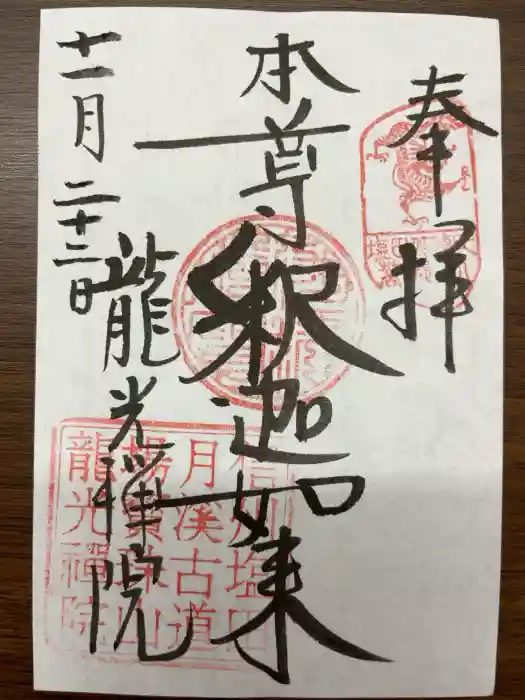 奉拝
本尊釈迦如来
十一月二十三日
龍光禅院
信州塩田
月溪古道
龍光禪院